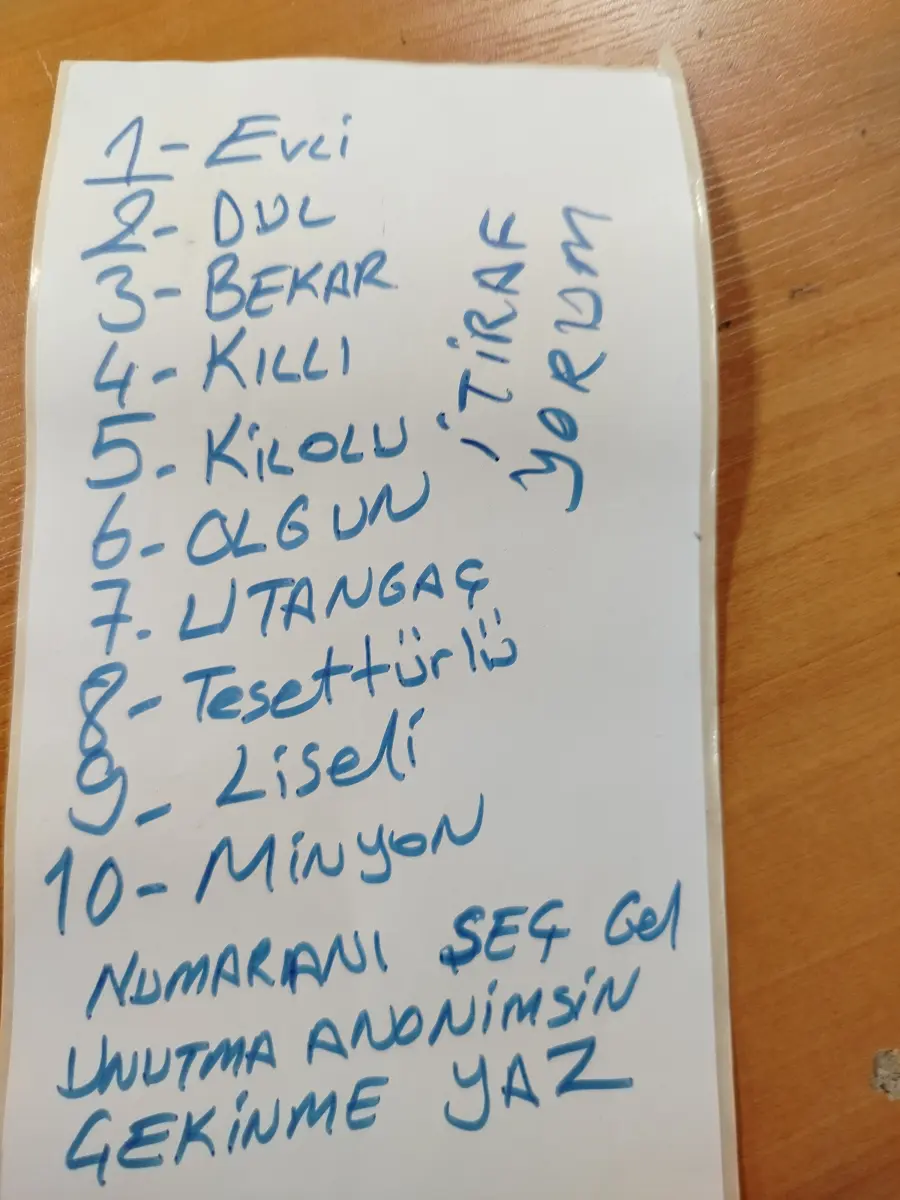 1- Evli
2- DUL
3- BEKAR
4- KILLI
5- KİLOLU
6- OLGUN
7- UTANGAÇ
8- Tesettürlü
9- Liseli
10- MİNYON
İTİRAF
YORUM
NUMARANI SEÇ Gel
UNUTMA ANONİMSİN
ÇEKİNME YAZ